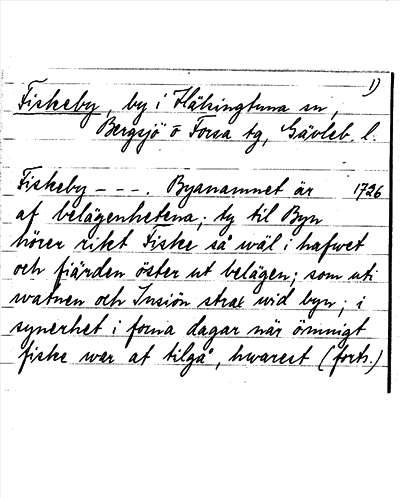 1)
Fiskeby, by i Hälsingtuna sn,
Bergsjö o Forsa tg, Gävleb. l.
Fiskeby - - - . Byanamnet är 1726
af belägenhetena; ty til Byn
hörer rikt Fiske så wäl i hafwet
och fiärden öster ut belägen; som uti
watnen och Insiön strax wid byn; i
synerhet i forna dagar när ömnigt
fiske war at tilgå, hwarest (forts.)